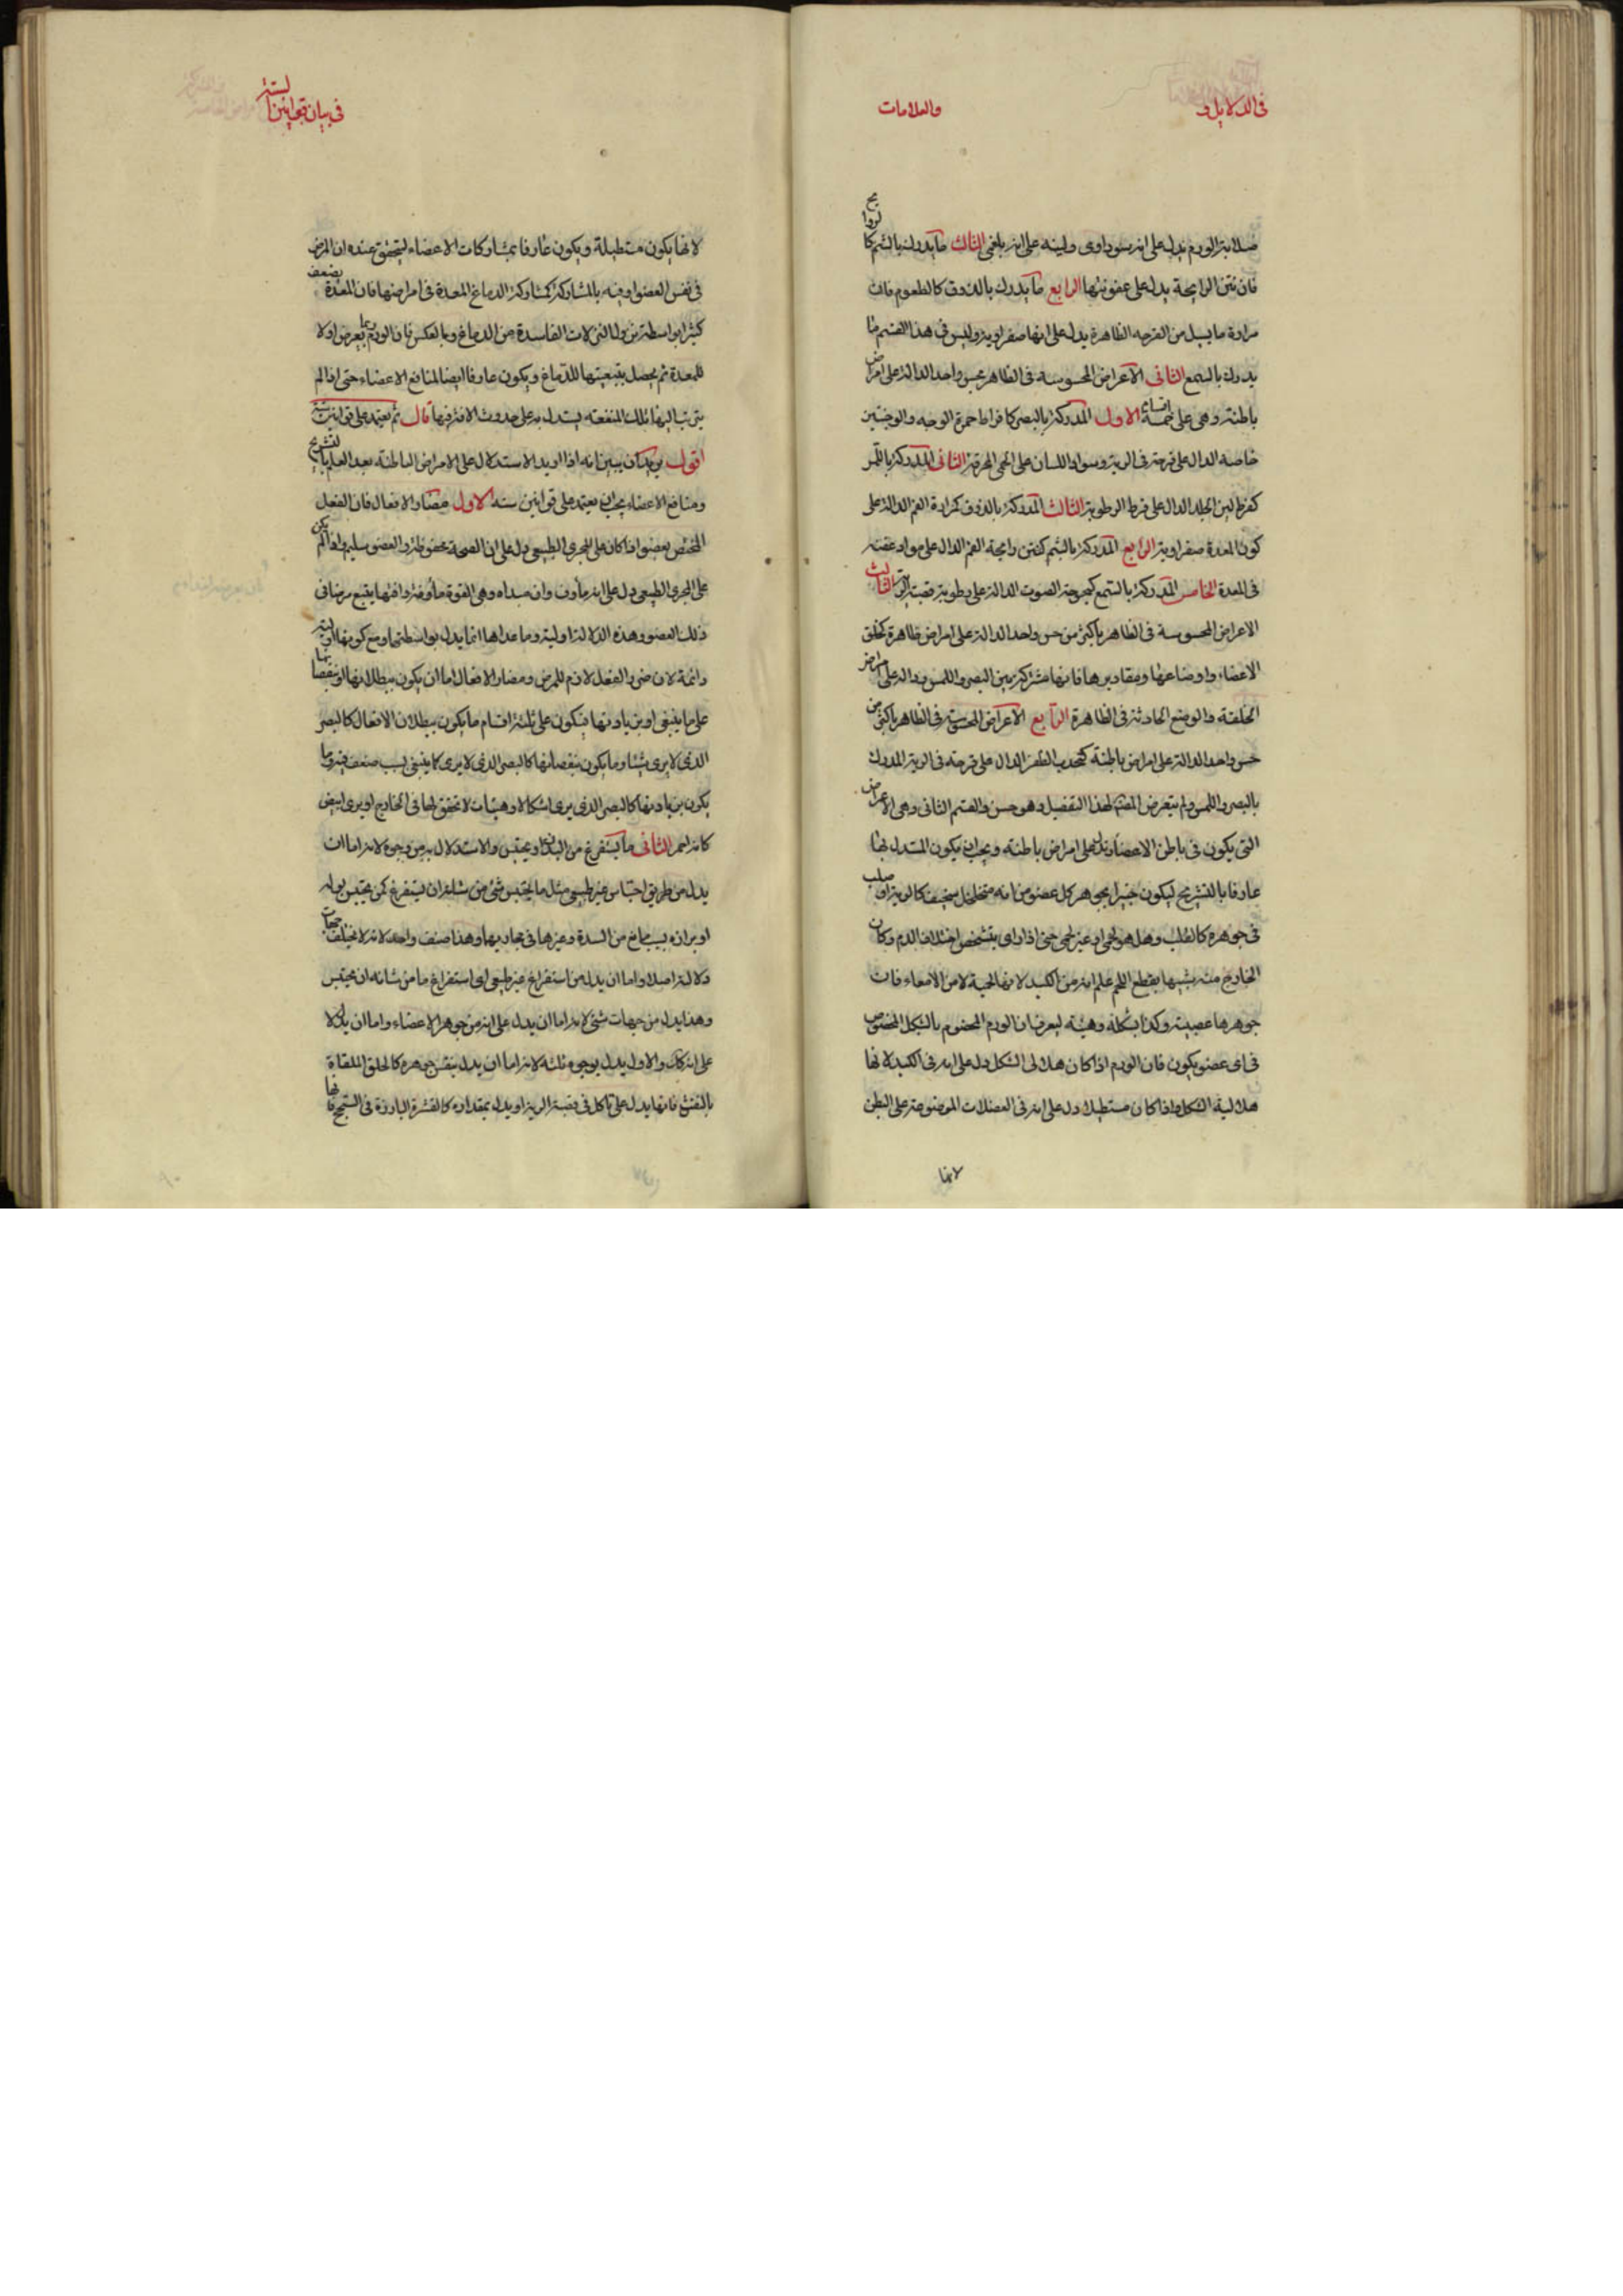 فى الدلايل و
والعلامات
صلابة الورم يدل على انه سوداوى ولينه على انه بلغمى الثالث ما يدرك بالشم كالروايح
فان نتن الرايحة يدل على عفونتها الرابع ما يدرك بالذوق كالطعوم فان
مرارة ما يسيل من القرحه الظاهرة يدل على انها صفراوية وليس فى هذا القسم ما
يدرك بالسمع الثانى الاعراض المحسوسة فى الظاهر بحس واحد الدالة على امراض
باطنة وهى على خمسة اقسام الاول المدركة بالبصر كافراط حمرة الوجه والوجنتين
خاصه الدال على قرحة فى الرية وسواد اللسان على الحمى المحرقة الثانى المدركة باللمس
كفرط لين الجلد الدال على فرط الرطوبة الثالث المدركة بالذوق كمرارة الفم الدالة على
كون المعدة صفراوية الرابع المدركة بالشم كنتن رايحة الفم الدال على مواد عفنه
فى المعدة الخامس المدركة بالسمع كبحوحة الصوت الدالة على رطوبة قصبة الرية الثالث
الاعراض المحسوسة فى الظاهر باكثر من حس واحد الدالة على امراض ظاهرة كخلق
الاعضاء واوضاعها ومقاديرها فانها مشتركة بين البصر واللمس ودالة على امراض
الخلقة والوضع الحادثة فى الظاهرة الرابع الاعراض المحسوسة فى الظاهر باكثر من
حس واحد الدالة على امراض باطنة كتحدب الظفر الدال على قرحة فى الرية المدرك
بالبصر واللمس ولم يتعرض المصنف لهذا التفصيل وهو حسن والقسم الثانى وهى الاعراض
التى يكون فى باطن الاعضاء وتدل على امراض باطنه ويجب ان يكون المستدل بها
عارفا بالتشريح ليكون خبيرا بجوهر كل عضو من انه متخلخل سخيف كالرية او صلب
فى جوهره كالقلب وهل هو لحمى او غير لحمى حتى اذا راى بتشخص اختلاف الدم وكان
الخارج منه شبيها بقطع اللحم علم انه من الكبد لانها لحمية لا من الامعاء فان
جوهرها عصبية وكذا بشكله وهيئه ليعرف ان الورم المخصوم بالشكل المخصوص
فى اى عضو يكون فان الورم اذا كان هلالى الشكل دل على انه فى الكبد لانها
هلالية الشكل واذا كان مستطيلا دل على انه فى العضلات الموضوعة على البطن
لانها
فى بيان قوانين الستة
لانها يكون مستطيلة ويكون عارفا بمشاركات الاعضاء ليتحقق عنده ان المرض
فى نفس العضو او فيه بالمشاركة كمشاركة الدماغ المعدة فى امراضها فان المعدة يضعف
كثيرا بواسطة نزول النزلات الفاسدة من الدماغ وبالعكس فان الورم ربما يعرض اولا
للمعدة ثم يحصل بتبعيتها للدماغ ويكون عارفا ايضا لمنافع الاعضاء حتى اذا لم
يترتب اليها تلك المنفعه يستدل به على حدوث الافة فيها قال ثم يعتمد على قوانين ستة
اقول يريد ان يبين انه اذا اريد الاستدلال على الامراض الباطنة بعد العلم بالتشريح
ومنافع الاعضاء يجب ان يعتمد على قوانين ستة الاول مضار الافعال فان الفعل
المختص بعضو اذا كان على المجرى الطبيعى دل على ان الصحة محفوظة والعضو سليم واذا لم يكن
على المجرى الطبيعى دل على انه مأوف وان مبداه وهى القوة مأوفة وافتها يتبع مرضا فى
ذلك العضو وهذه الدلالة اولية وما عداها انما يدل بواسطتها ومع كونها اولية
دائمة لان ضرر الفعل لازم للمرض ومضار الافعال اما ان يكون ببطلانها او بنقصانها
على ما ينبغى او بزيادتها فيكون على ثلثة اقسام ما يكون ببطلان الافعال كالبصر
الذى لا يرى شيئا وما يكون بنقصانها كالبصر الذى لا يرى كما ينبغى بسبب ضعف فيه وما
يكون بزيادتها كالبصر الذى يرى اشكالا وهيئات لا تحقق لها فى الخارج او يرى ابيض
كانه احمر الثانى ما يستفرغ من البدن او يحتبس والاستدلال به من وجوه لانه اما ان
يدل من طريق احتباس غير طبيعى مثل ما يحتبس شئ من شانه ان يستفرغ كمن يحتبس بوله
او برازه بسبب مانع من السدة وغيرها فى مجاريها وهذا صنف واحد لانه لا يختلف جهات
دلالته اصلا واما ان يدل من استفراغ غير طبيعى اى استفراغ ما من شانه ان يحتبس
وهذا يدل من جهات شتى لانه اما ان يدل على انه من جوهر الاعضاء واما ان يدل لا
على انه كان والاول يدل بوجوه ثلثه لانه اما ان يدل بنفس جوهره كالحلق الملقاة
بالنفث فانها يدل على تاكل فى قصبة الرية او يدل بمقداره كالقشرة البارزة فى السحج فانها